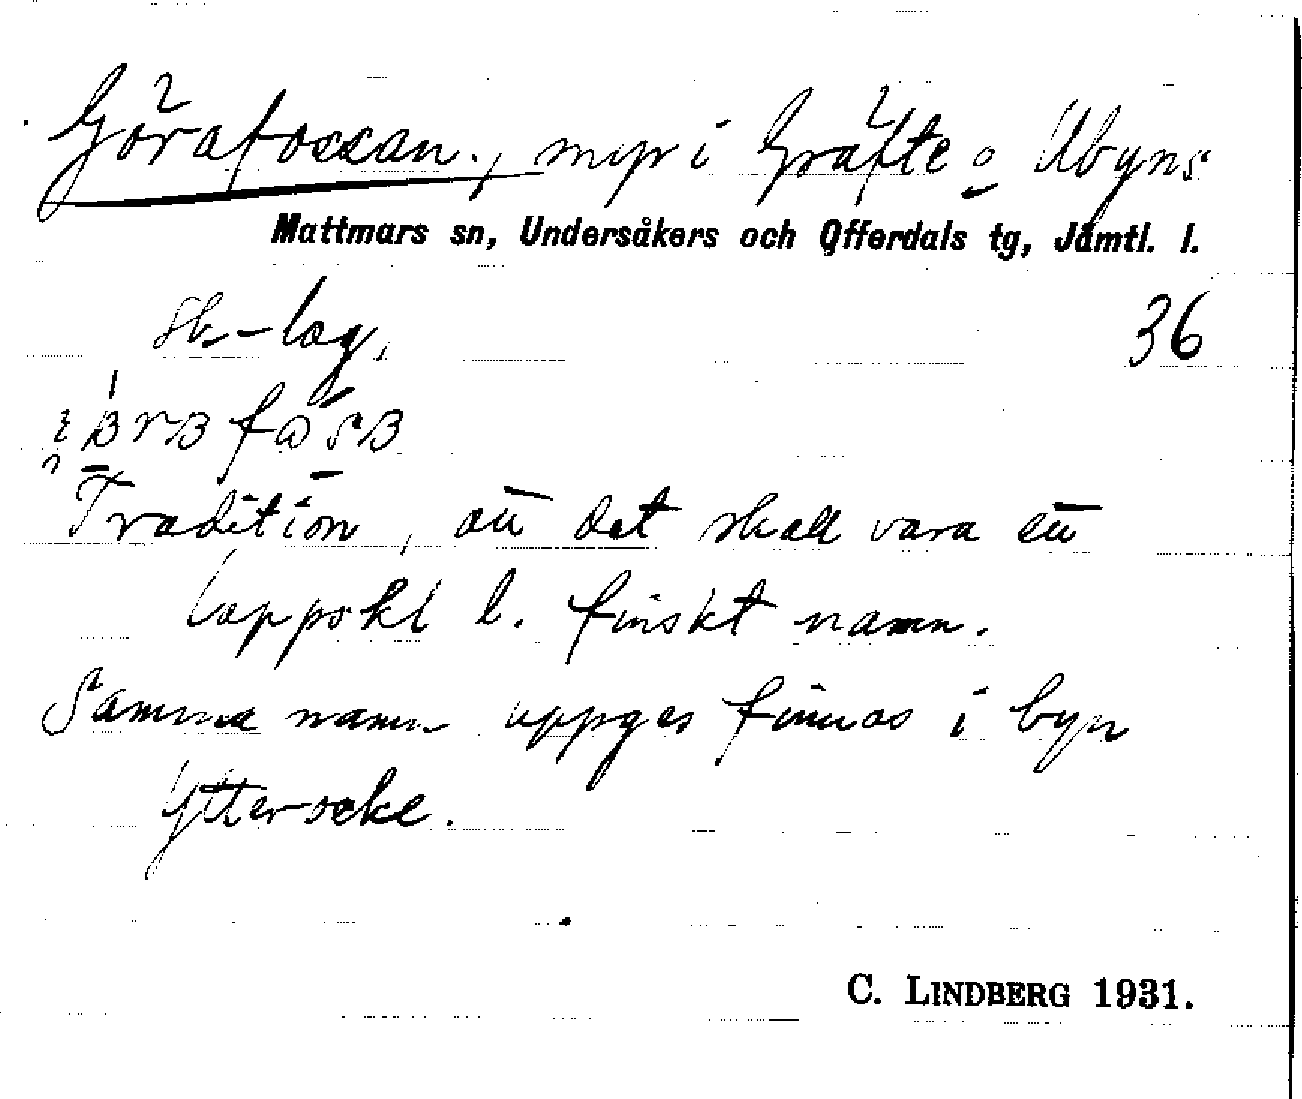 Görafossan, myr i Gräfte o Ubyns
Mattmars sn, Undersåkers och Offerdals tg, Jämtl. l.
sk-lag, 36
Tradition, att det skall vara ett
lappskt l. finskt namn.
Samma namn uppges finnas i byn
Ytterocke.
C. LINDBERG 1931.